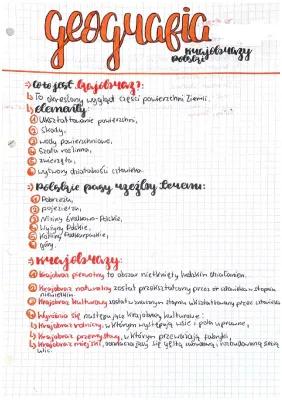 Geografia
krajobrazy
Polski
⇒ Co to jest krajobraz?:
↳ To określony wygląd części powierzchni Ziemi.
↳ elementy:
① Ukształtowanie powierzchni,
② Skały,
③ wody powierzchniowe,
④ Szata roślinna,
⑤ zwierzęta,
⑥ wytwory działalności człowieka.
⇒ Polskie pasy rzeźby terenu:
① Pobrzeża,
② pojezierza,
③ Niziny Środkowo-Polskie,
④ Wyżyny Polskie,
⑤ Kotliny Podkarpackie,
⑥ góry.
⇒ Krajobrazy:
Krajobraz pierwotny to obszar nietknięty ludzkim działaniem.
Krajobraz naturalny został przekształcony przez człowieka w stopniu
niewielkim.
Krajobraz kulturowy został w znacznym stopniu ukształtowany przez człowieka
Wyróżnia się następujące krajobrazy kulturowe:
↳ Krajobraz rolniczy, w którym występują wsie i pola uprawne,
↳ Krajobraz przemysłowy, w którym przeważają fabryki,
↳ Krajobraz miejski, odznaczający się gęstą zabudową i rozbudowaną siecią
ulic.